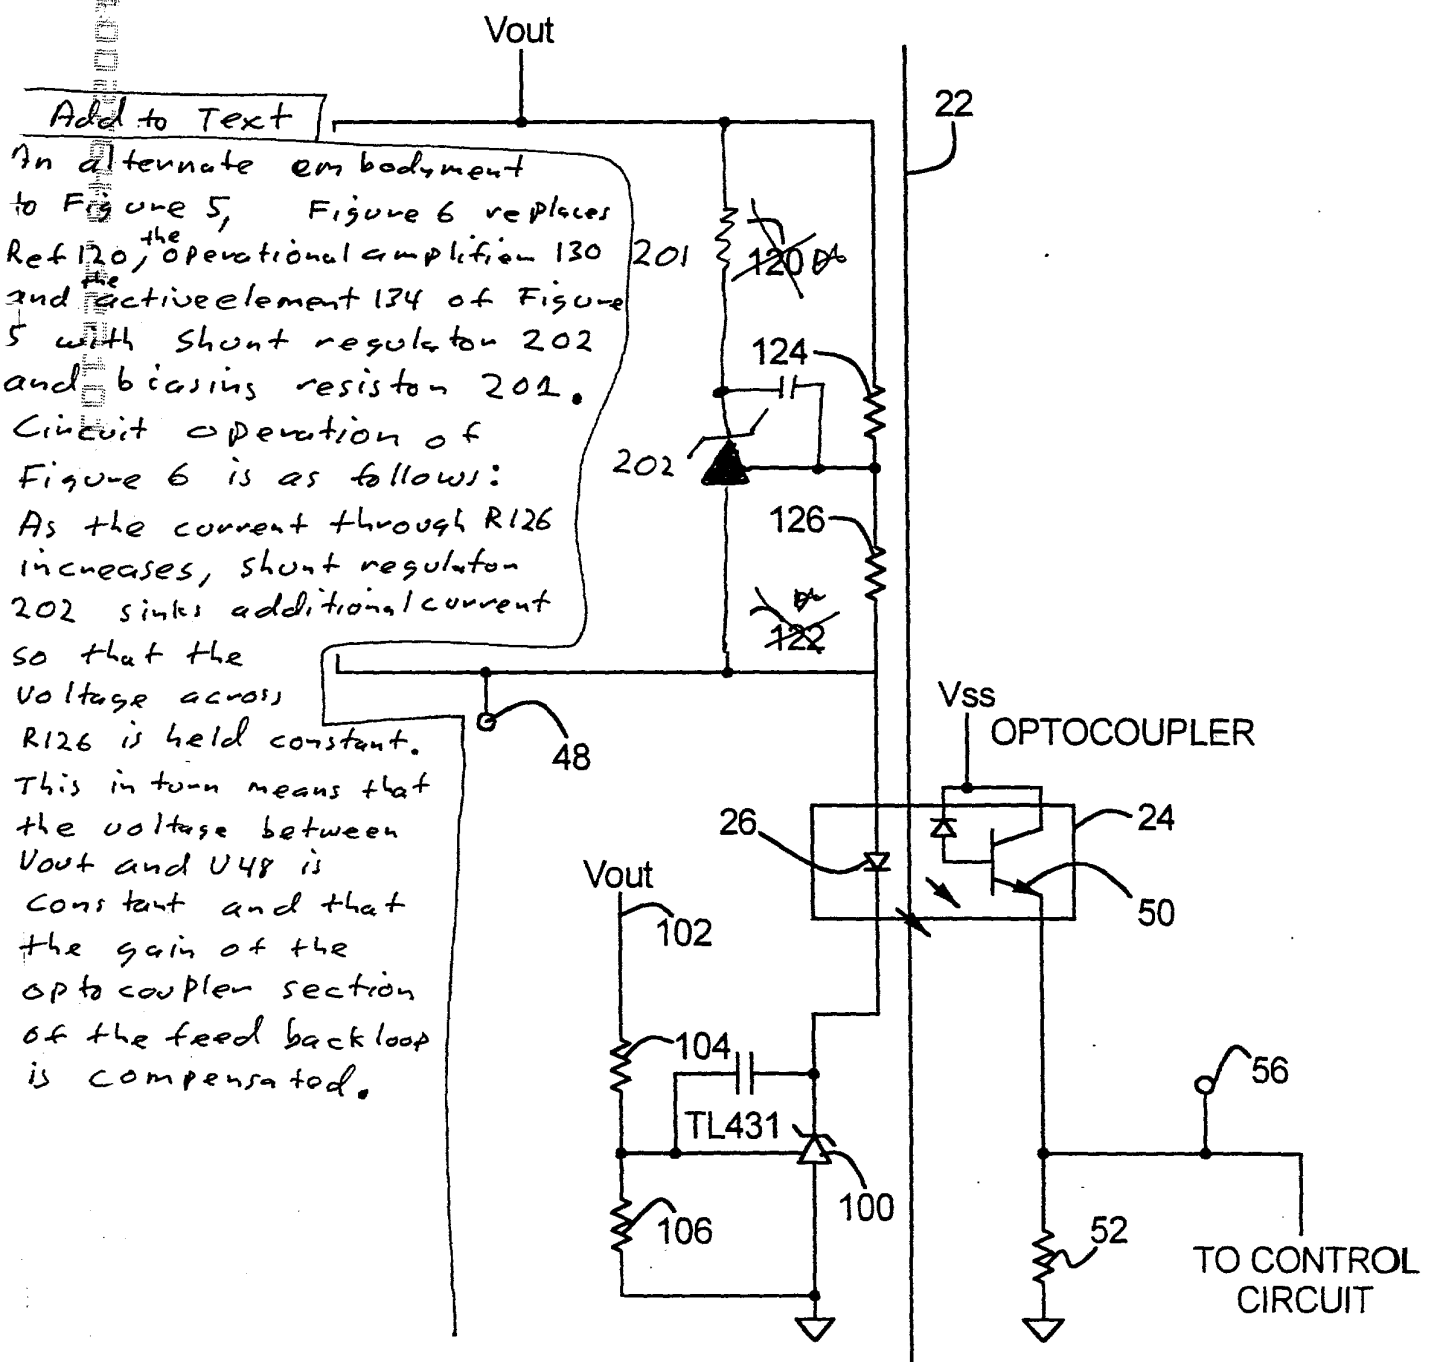 Vout
22
Add to Text
An alternate embodyment
to Figure 5, Figure 6 replaces
Ref 120, the operational amplifier 130
and the active element 134 of Figure
5 with shunt regulator 202
and biasing resistor 201.
Circuit operation of
Figure 6 is as follows:
As the current through R126
increases, shunt regulator
202 sinks additional current
so that the
voltage across
R126 is held constant.
This in turn means that
the voltage between
Vout and U48 is
constant and that
the gain of the
opto coupler section
of the feed back loop
is compensated.
201
120
124
202
126
122
48
Vss
OPTOCOUPLER
26
24
50
Vout
102
104
TL431
100
106
56
52
TO CONTROL
CIRCUIT